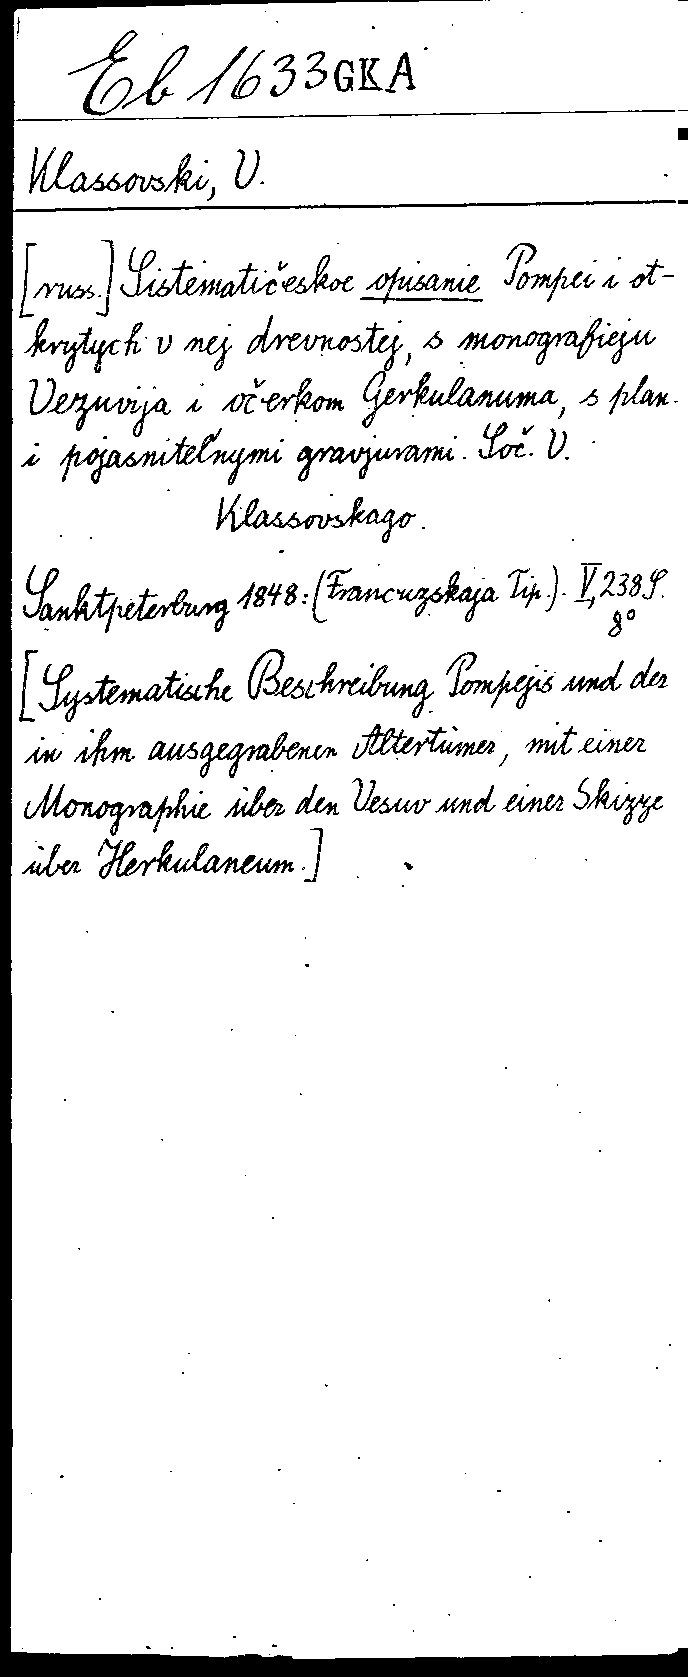 Eb 1633 GKA
Klassovski, V.
[russ.] Sistematičeskoe opisanie Pompei i ot-
krytych v nej drevnostej, s monografieju
Vezuvija i očerkom Gerkulanuma, s plan.
i pojasnitel'nymi gravjurami. Soč. V.
Klassovskago.
Sanktpeterburg 1848: (Francuzskaja Tip.). V, 238 S.
8°
[Systematische Beschreibung Pompejis und der
in ihm ausgegrabenen Altertümer, mit einer
Monographie über den Vesuv und einer Skizze
über Herkulaneum.]